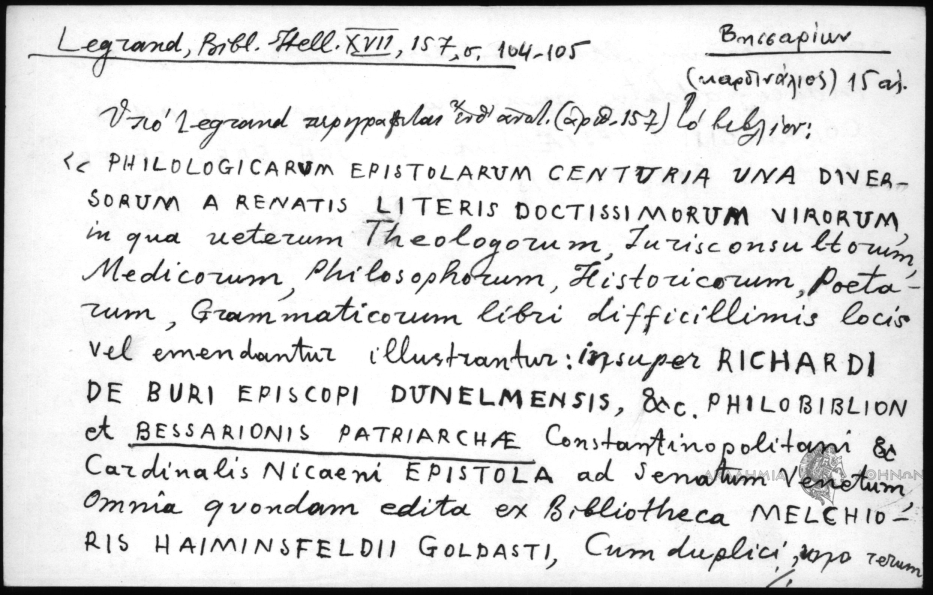 Legrand, Bibl. Hell. XVII, 157, σ. 104-105
Βησσαρίων
(καρδινάλιος) 15 αἰ.
Ὑπό Legrand περιγράφεται (ἀριθ. 157) τό βιβλίον:
<< PHILOLOGICARUM EPISTOLARUM CENTURIA UNA DIVER-
SORUM A RENATIS LITERIS DOCTISSIMORUM VIRORUM,
in qua veterum Theologorum, Iurisconsultorum,
Medicorum, Philosophorum, Historicorum, Poeta-
rum, Grammaticorum libri difficillimis locis
vel emendantur illustrantur: insuper RICHARDI
DE BURI EPISCOPI DUNELMENSIS, &c. PHILOBIBLION
et BESSARIONIS PATRIARCHÆ Constantinopolitani &
Cardinalis Nicaeni EPISTOLA ad Senatum Venetum,
Omnia quondam edita ex Bibliotheca MELCHIO-
RIS HAIMINSFELDII GOLDASTI, Cum duplici, rerum